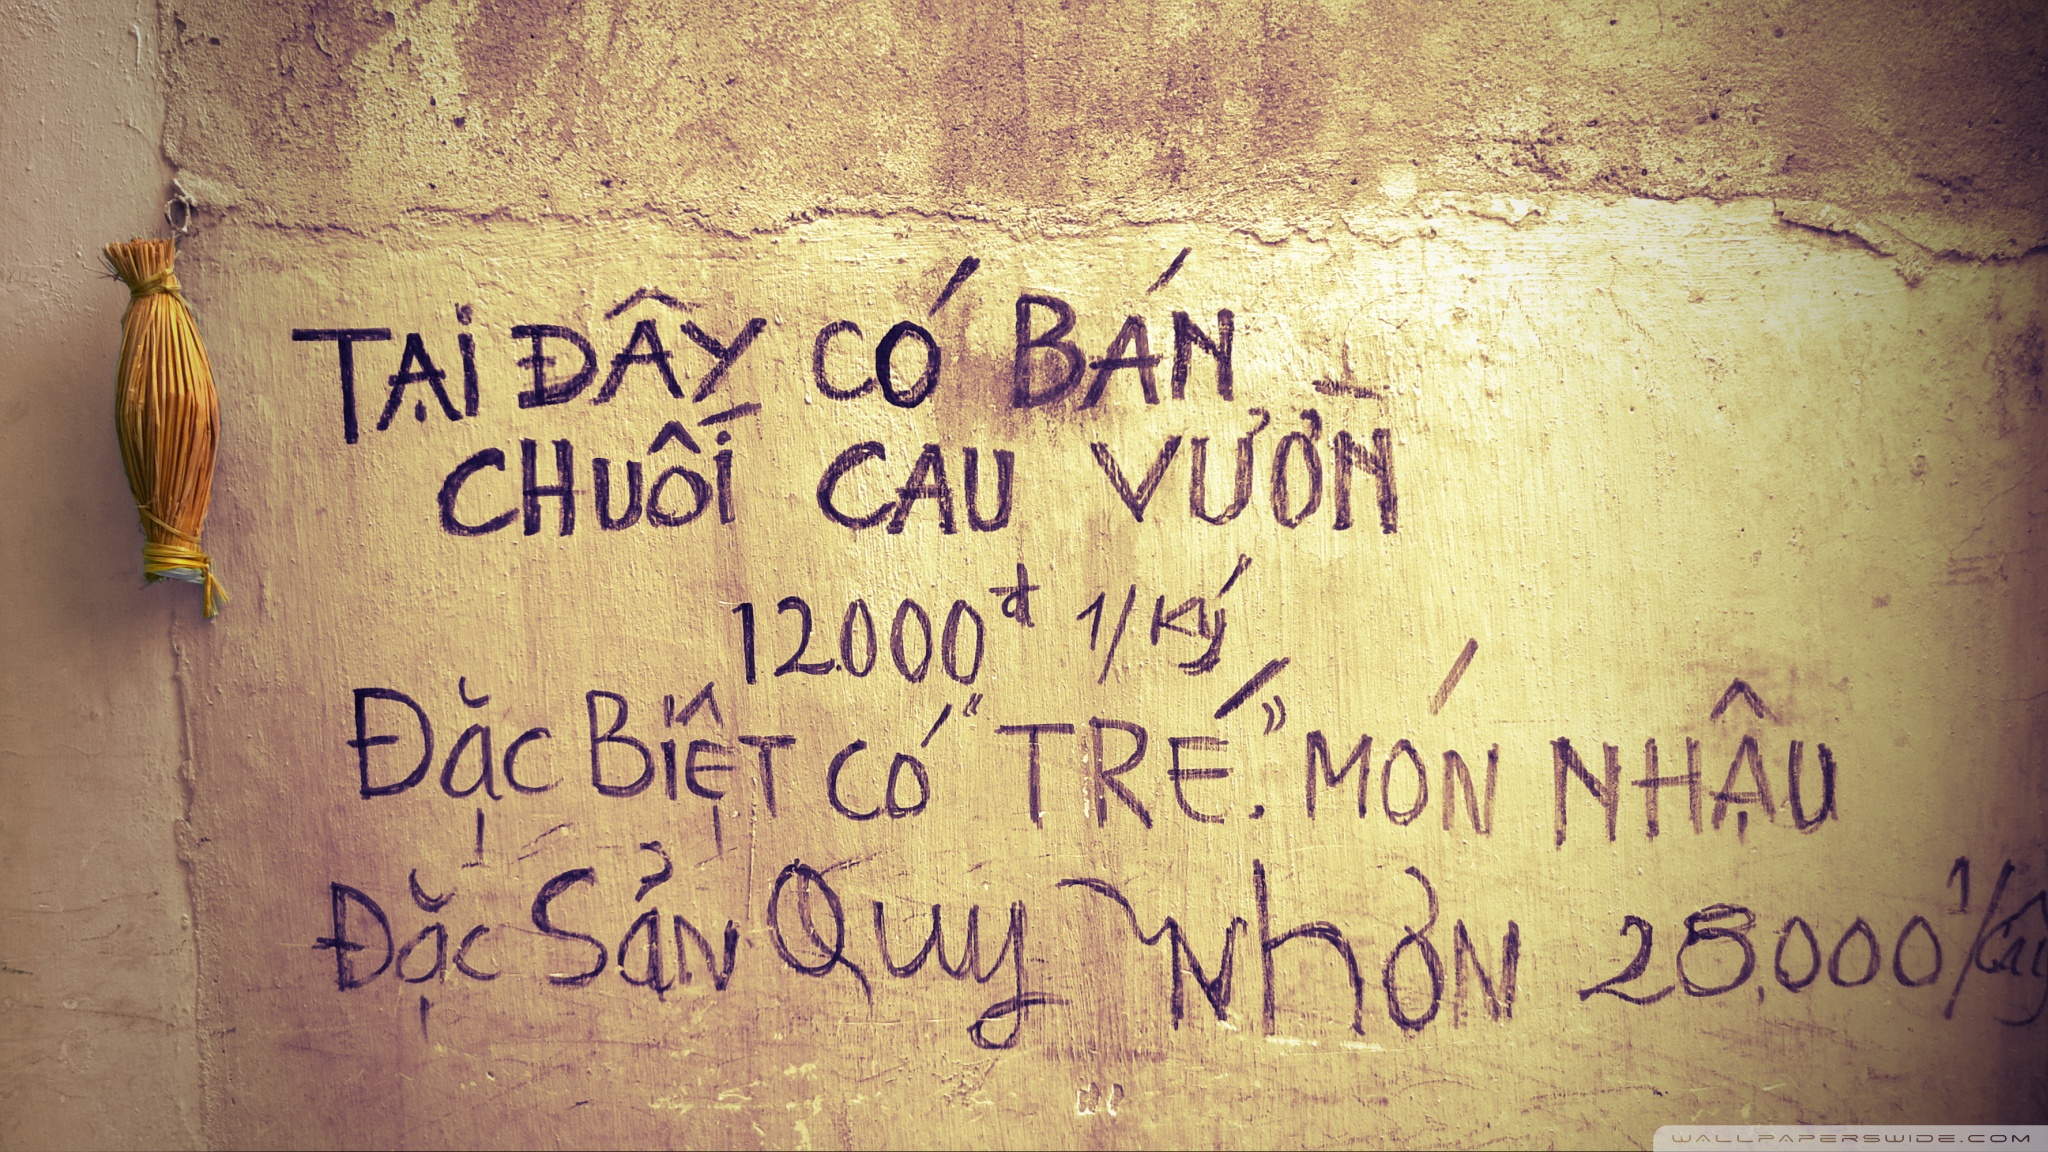 TẠI ĐÂY CÓ BÁN
CHUỐI CAU VƯỜN
12.000đ 1/Ký
ĐẶC BIỆT CÓ "TRÉ". MÓN NHẬU
ĐẶC SẢN QUY NHƠN 25,000 1/Cây
WALLPAPERSWIDE.COM